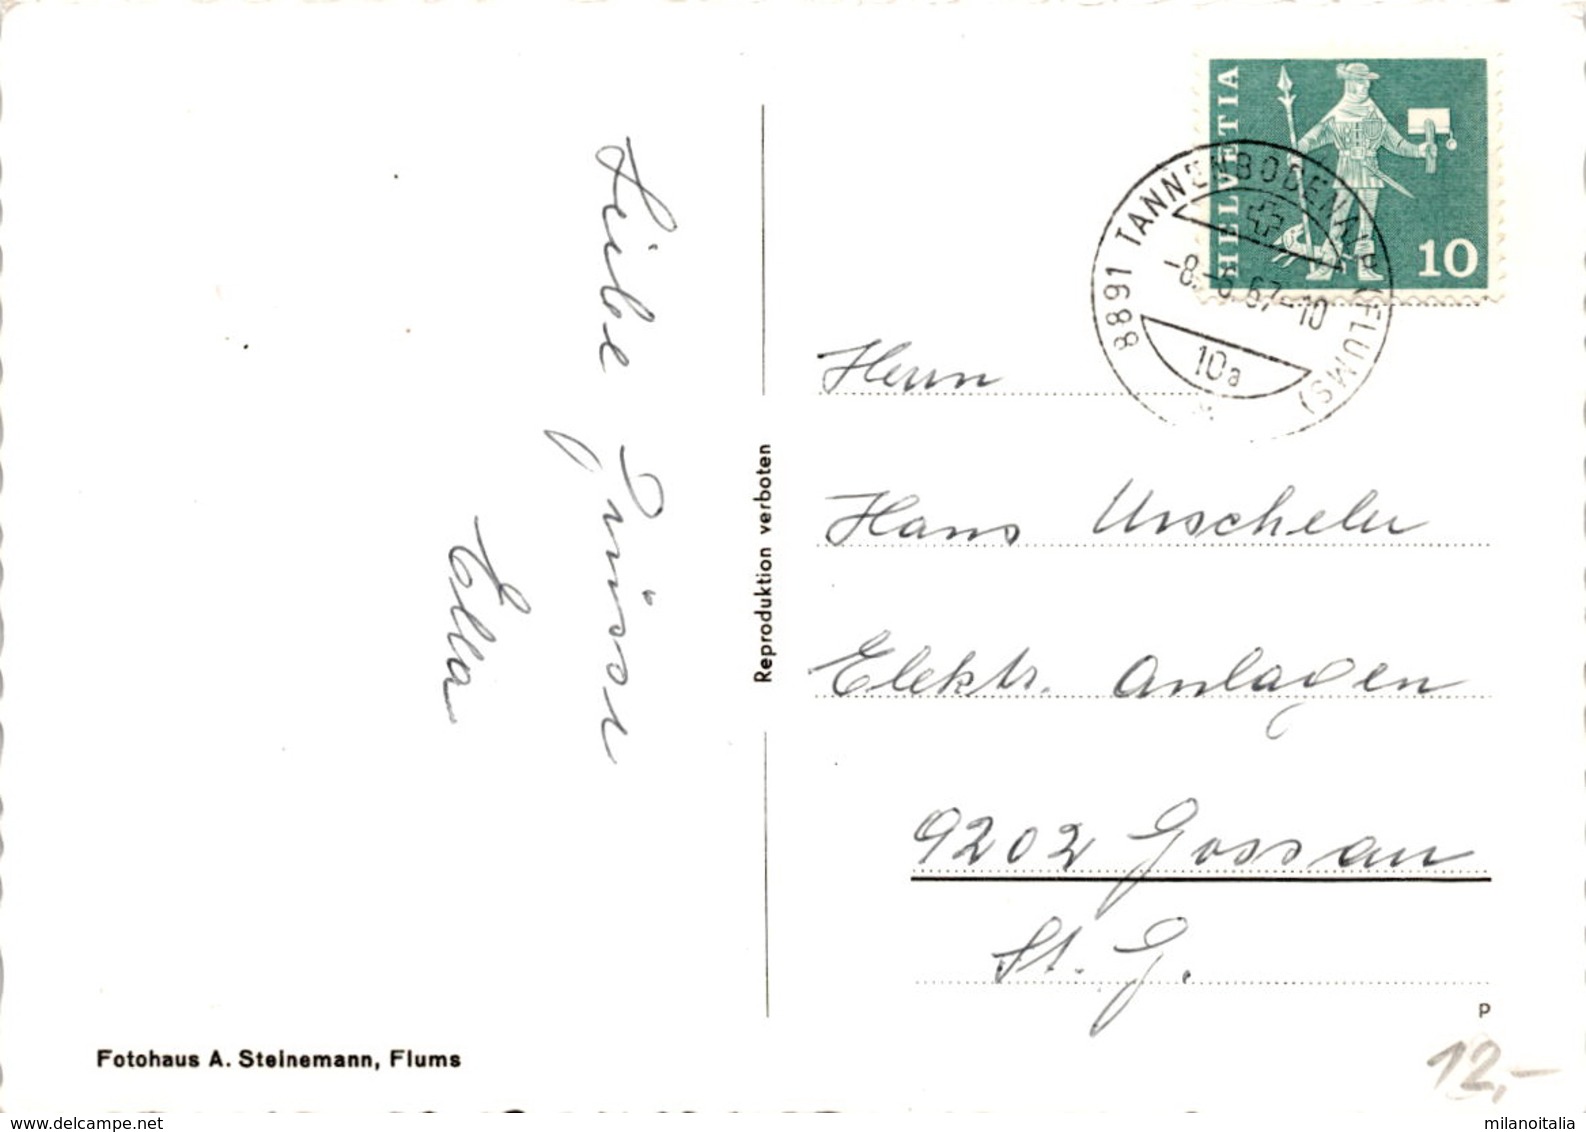 Liebe Grüsse
Ella
Reproduktion verboten
Fotohaus A. Steinemann, Flums
HELVETIA
10
8891 TANNENBODENALP (FLUMS)
-8.-6.67-10
10a
Herrn
Hans Urscheler
Elektr. Anlagen
9202 Gossau
St. G.
P
12,-
www.delcampe.net
milanoitalia